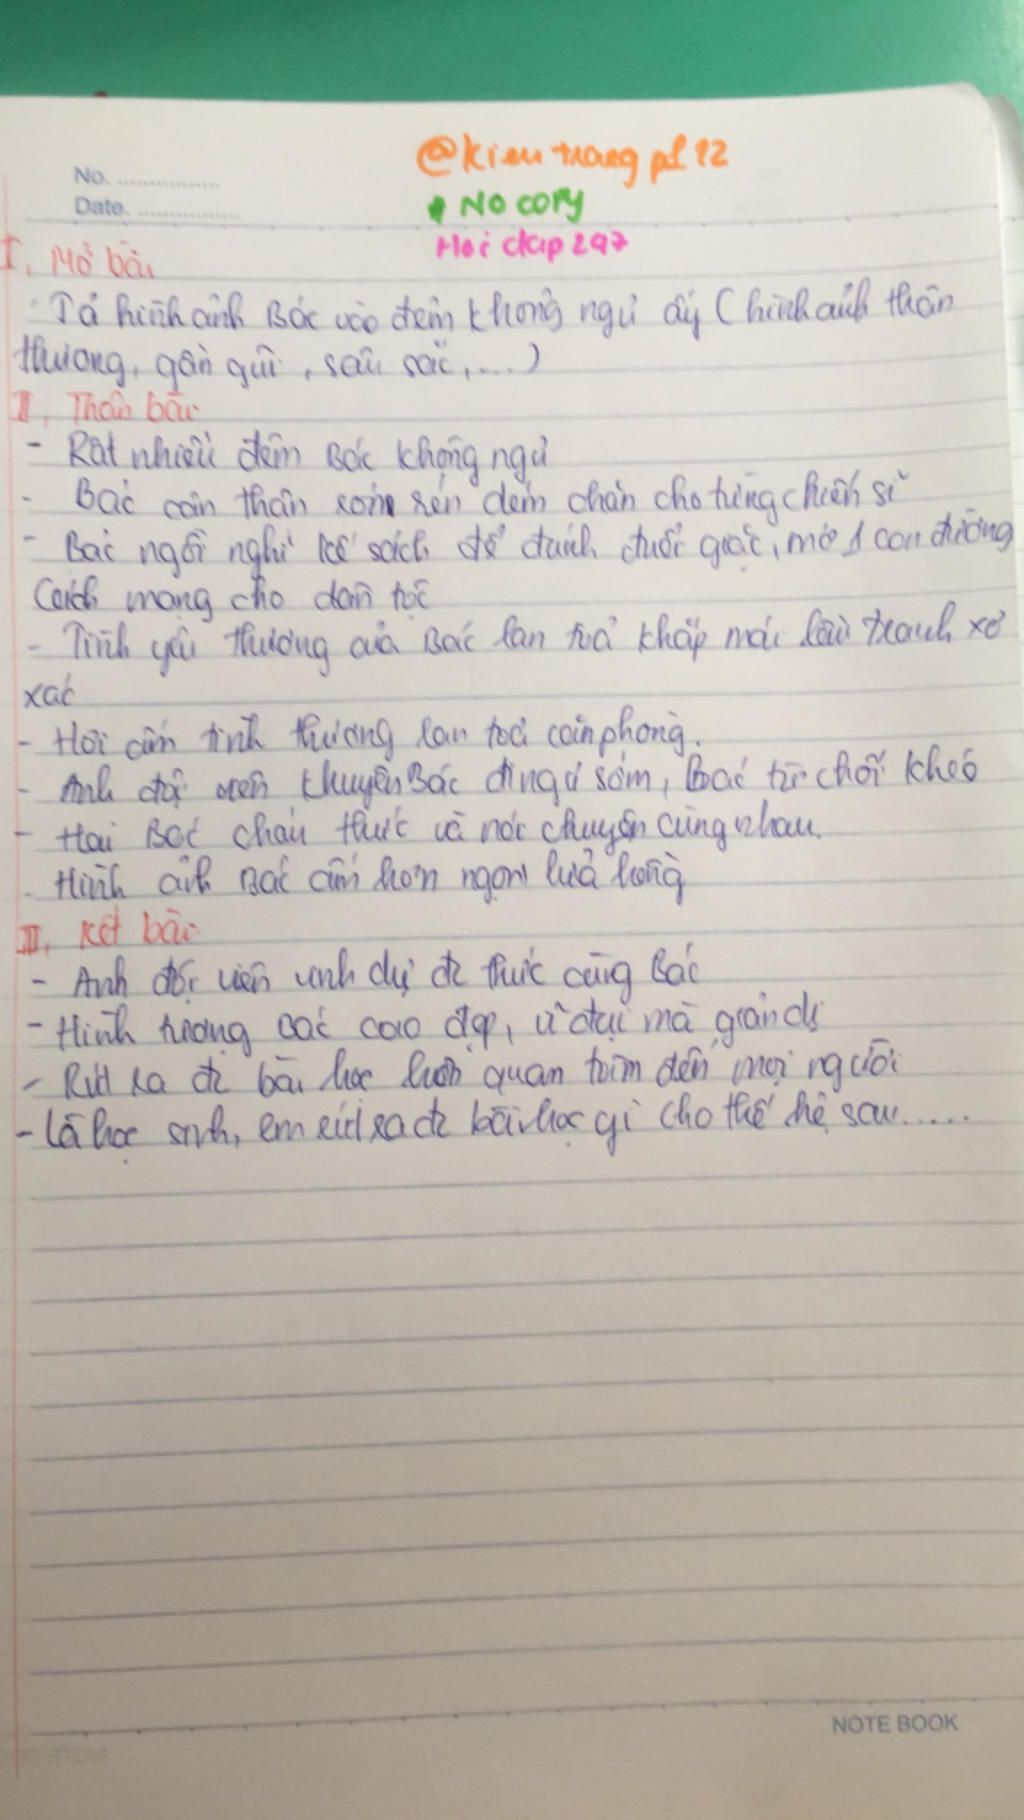 @kieutrangpl92
No. ................
Date. ................
No copy
Hoi dap 247
I, Mở bài
- Tả hình ảnh Bác vào đêm không ngủ ấy (hình ảnh thân
thương, gần gũi, sâu sắc,....)
II, Thân bài
- Rất nhiều đêm Bác không ngủ
- Bác cẩn thận rón rén dém chăn cho từng chiến sĩ
- Bác ngồi nghĩ kế sách để đánh đuổi giặc, mở 1 con đường
Cách mạng cho dân tộc
- Tình yêu thương của Bác lan toả khắp mái lều tranh xơ
xác
- Hơi ấm tình thương lan toả căn phòng.
- Anh đội viên khuyên Bác đi ngủ sớm, Bác từ chối khéo
- Hai Bác cháu thức và nói chuyện cùng nhau.
- Hình ảnh Bác ấm hơn ngọn lửa hồng
III, Kết bài
- Anh đội viên vinh dự đc thức cùng Bác
- Hình tượng Bác cao đẹp, vĩ đại mà giản dị
- Rút ra đc bài học luôn quan tâm đến mọi người
- Là học sinh, em rút ra đc bài học gì cho thế hệ sau.....
NOTE BOOK